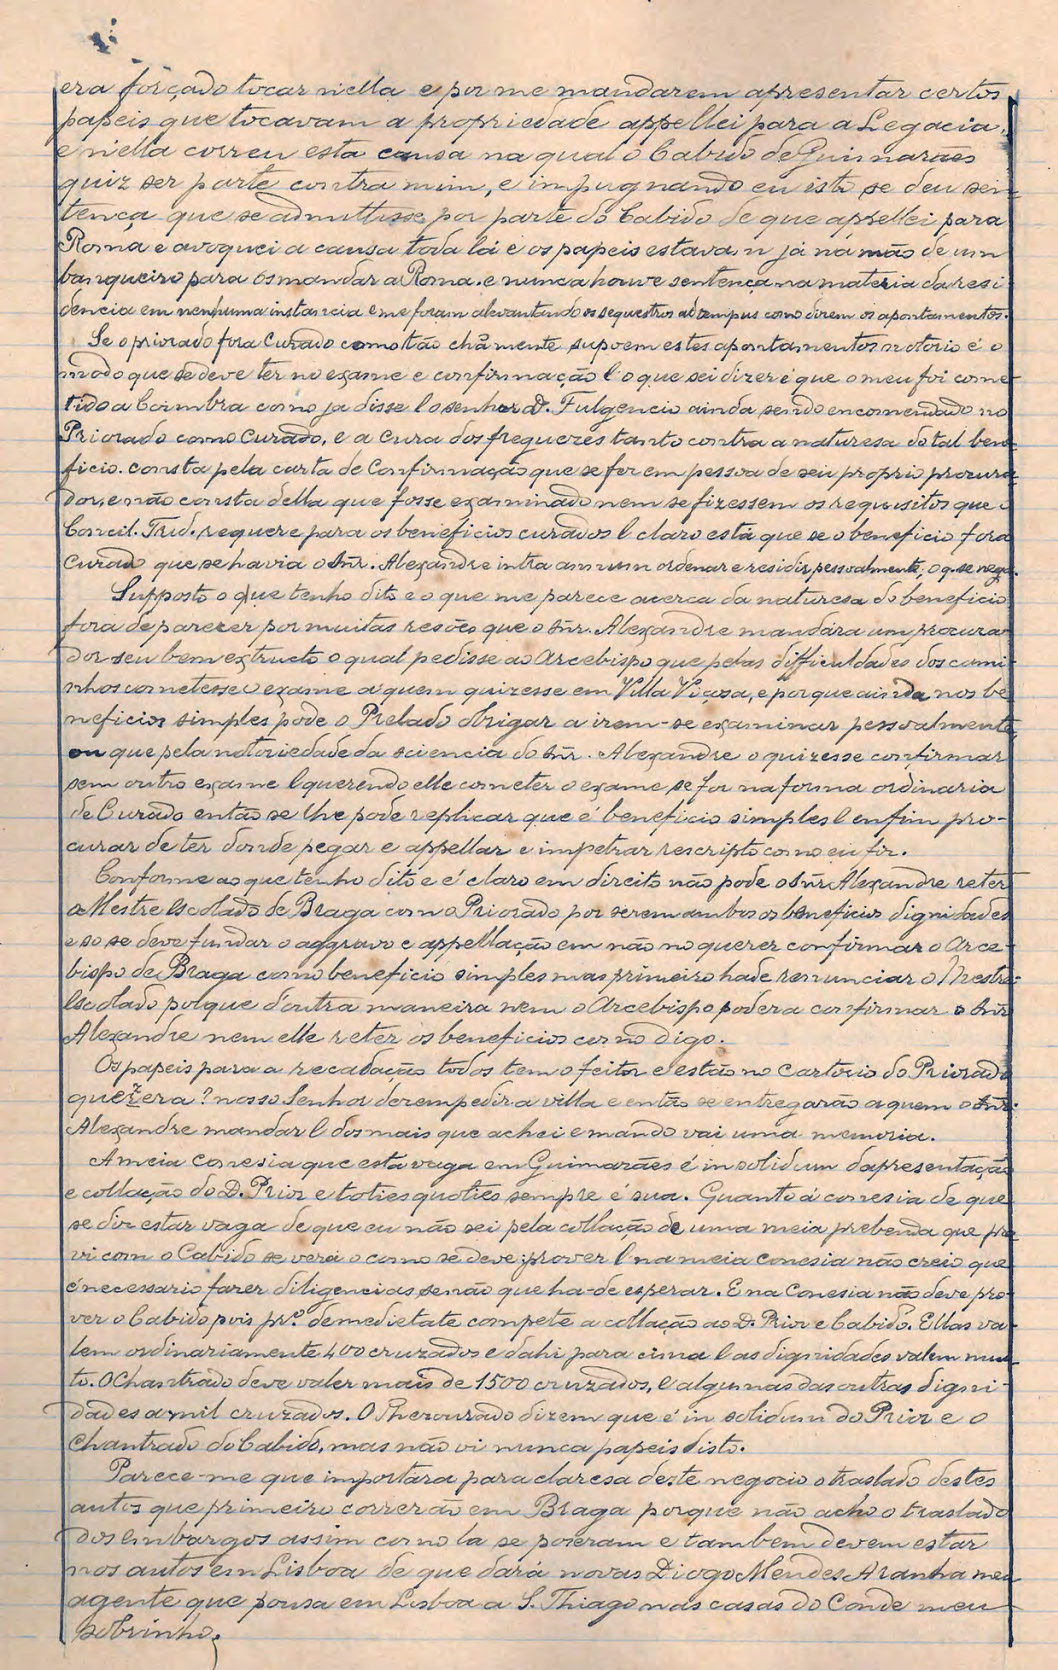 era forçado tocar n'ella e por me mandarem apresentar certos
papeis que tocavam a propriedade appellei para a Legacia,
e n'ella correu esta causa na qual o Cabido de Guimarães
quiz ser parte contra mim, e impugnando eu isto se deu sen-
tença que se admittisse por parte do Cabido de que appellei para
Roma e avoquei a causa toda lá e os papeis estavam já na mão de um
banqueiro para os mandar a Roma, e nunca houve sentença na materia da resi
dencia em nenhuma instancia e me foram alevantando os sequestros ad tempus como dizem os apontamentos.
Se o priorado fora Curado como tão chãmente supoem estes apontamentos notorio é o
modo que se deve ter no exame e confirmação l o que sei dizer é que o meu foi come-
tido a Coimbra como ja disse l o senhor D. Fulgencio ainda sendo encomendado no
Priorado como Curado, e a cura dos freguezes tanto contra a naturesa do tal bene
ficio. consta pela carta de Confirmação que se fez em pessoa de seu proprio procura-
dor, e não consta della que fosse examinado nem se fizessem os requisitos que o
Concil. Trid. requere para os beneficios curados l claro está que se o beneficio fora
Curado que se havia o Snr. Alexandre intra annum ordenar e residir pessoalmente, o q. se nega.
Supposto o que tenho dito e o que me parece acerca da naturesa do beneficio
fora de parecer por muitas resões que o Snr. Alexandre mandára um procura-
dor seu bem extructo o qual pedisse ao Arcebispo que pelas difficuldades dos cami-
nhos cometesse o exame a quem quizesse em Villa Viçosa, e porque ainda nos be
neficios simples pode o Prelado obrigar a irem-se examinar pessoalmente,
ou que pela notoriedade da sciencia do Snr. Alexandre o quizesse confirmar
sem outro exame l querendo elle cometer o exame se for na forma ordinaria
de Curado então se lhe pode replicar que é beneficio simples l enfim pro-
curar de ter donde pegar e appellar e impetrar rescripto como eu fiz.
Conforme ao que tenho dito e é claro em direito não pode o Snr Alexandre reter
o Mestre Escolado de Braga com o Priorado por serem ambos os beneficios dignidades
e so se deve fundar o aggravo e appellação em não no querer confirmar o Arce-
bispo de Braga como beneficio simples mas primeiro hade renunciar o Mestre-
Escolado porque d'outra maneira nem o Arcebispo podera confirmar o Snr
Alexandre nem elle reter os beneficios como digo.
Os papeis para a recadação todos tem o feitor e estão no Cartorio do Priorado
quezera? nosso Senhor derempedir a villa e então se entregarão a quem o Snr.
Alexandre mandar l dos mais que achei e mando vai uma memoria.
A meia Conesia que está vaga em Guimarães é in solidum dapresentação
e collação do D. Prior e toties quoties sempre é sua. Quanto á conesia de que
se diz estar vaga de que eu não sei pela collação de uma meia prebenda que pro-
vi com o Cabido se verá o como se deve prover l na meia conesia não creio que
é necessario fazer diligencias senão que ha-de esperar. E na Conesia não deve pro-
ver o Cabido pois pr.º de medietate compete a collação ao D. Prior e Cabido. Ellas va-
lem ordinariamente 400 cruzados e dahi para cima l as dignidades valem mui-
to. O Chantrado deve valer mais de 1500 cruzados, l algumas das outras digni-
dades a mil cruzados. O Thesourado dizem que é in solidum do Prior e o
Chantrado do Cabido, mas não vi nunca papeis disto.
Parece-me que importára para claresa deste negocio o traslado destes
autos que primeiro correrão em Braga porque não acho o traslado
dos embargos assim como la se poseram e tambem devem estar
nos autos em Lisboa de que dará novas Diogo Mendes Aranha meu
agente que pousa em Lisboa a S. Thiago nas casas do Conde meu
sobrinho.